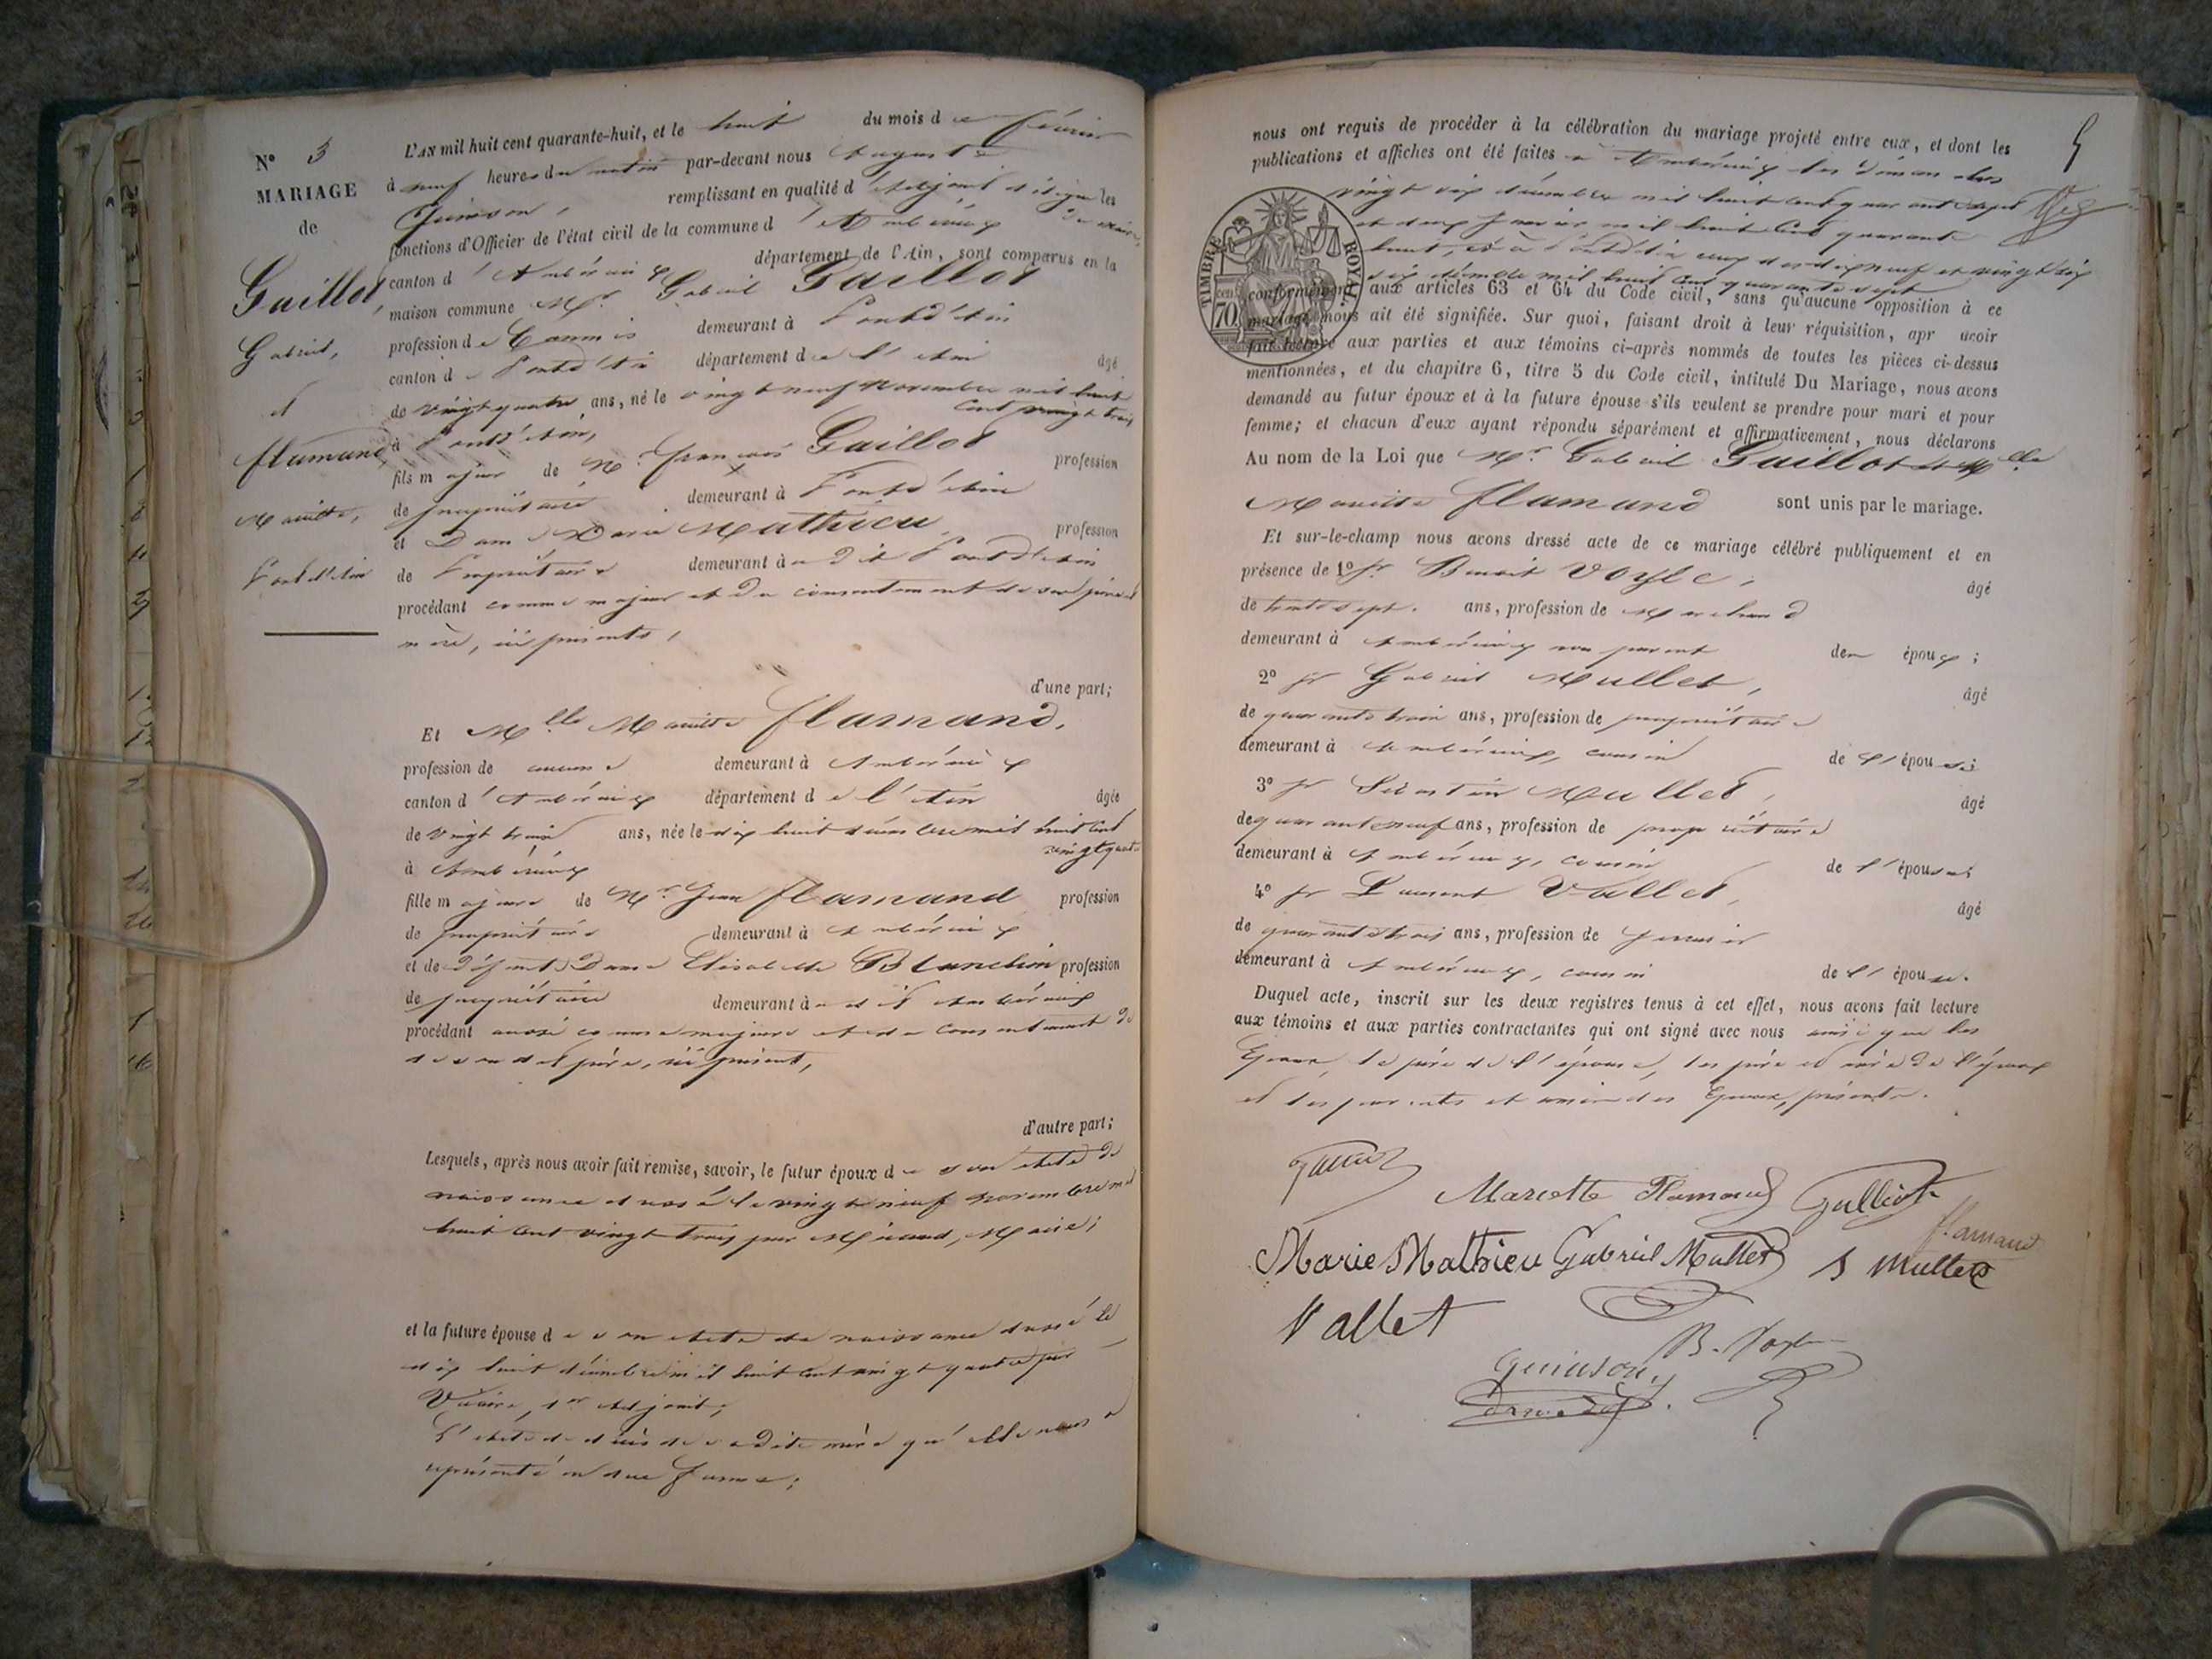 N° 3
MARIAGE
de
Guillot,
Gabriel,
et
flamand,
Mariette,
Pont d'Ain
L'AN mil huit cent quarante-huit, et le huit du mois de février
à neuf heures du matin par-devant nous Auguste
Quinson, remplissant en qualité d'Adjoint les
fonctions d'Officier de l'état civil de la commune d'Ambérieux
canton d'Ambérieux département de l'Ain, sont comparus en la
maison commune Mr. Gabriel Guillot
profession de Commis demeurant à Pont d'Ain
canton de Pont d'Ain département de l'Ain âgé
de vingt quatre ans, né le vingt neuf novembre mil huit
cent vingt trois
à Pont d'Ain,
fils majeur de Mr. françois Guillot profession
de propriétaire demeurant à Pont d'Ain
et Dame Marie Mathieu, profession
de Propriétaire demeurant à dit Pont d'Ain
procédant comme majeur et du consentement de ses père et
mère, ici présents,
d'une part;
Et Mlle Mariette flamand,
profession de aucune demeurant à Ambérieux
canton d'Ambérieux département de l'Ain âgée
de vingt trois ans, née le dix huit décembre mil huit cent
vingt quatre
à Ambérieux
fille majeure de Mr. Jean flamand profession
de propriétaire demeurant à Ambérieux
et de défunte Dame Elisabeth Blanchin profession
de propriétaire demeurant au dit Ambérieux
procédant aussi comme majeure et du consentement de
son dit père, ici présent,
d'autre part;
Lesquels, après nous avoir fait remise, savoir, le futur époux de son acte de
naissance dressé le vingt neuf novembre mil
huit cent vingt trois par Maire;
et la future épouse de son acte de naissance dressé le
dix huit décembre mil huit cent vingt quatre par
1er Adjoint;
L'acte de décès de sa dite mère qu'elle nous a
représenté en due forme;
5
nous ont requis de procéder à la célébration du mariage projeté entre eux, et dont les
publications et affiches ont été faites à Ambérieux les dimanches
vingt six décembre mil huit cent quarante sept
et deux janvier mil huit cent quarante
huit, et à Pont d'Ain ceux des dix neuf et vingt six
décembre mil huit cent quarante sept
TIMBRE ROYAL
70
conformément aux articles 63 et 64 du Code civil, sans qu'aucune opposition à ce
mariage nous ait été signifiée. Sur quoi, faisant droit à leur réquisition, apr avoir
fait lecture aux parties et aux témoins ci-après nommés de toutes les pièces ci-dessus
mentionnées, et du chapitre 6, titre 5 du Code civil, intitulé Du Mariage, nous avons
demandé au futur époux et à la future épouse s'ils veulent se prendre pour mari et pour
femme; et chacun d'eux ayant répondu séparément et affirmativement, nous déclarons
Au nom de la Loi que Mr. Gabriel Guillot et Mlle
Mariette flamand sont unis par le mariage.
Et sur-le-champ nous avons dressé acte de ce mariage célébré publiquement et en
présence de 1° Sr. Benoit Voyle, âgé
de trente sept ans, profession de Marchand
demeurant à Ambérieux non parent des époux;
2° Sr Gabriel Mullet, âgé
de quarante trois ans, profession de propriétaire
demeurant à Ambérieux, cousin de l'épouse;
3° Sr Sébastien Mullet, âgé
de quarante neuf ans, profession de propriétaire
demeurant à Ambérieux, cousin de l'épouse;
4° Sr Laurent Vallet, âgé
de quarante trois ans, profession de
demeurant à Ambérieux, cousin de l'épouse.
Duquel acte, inscrit sur les deux registres tenus à cet effet, nous avons fait lecture
aux témoins et aux parties contractantes qui ont signé avec nous ainsi que les
Epoux, le père de l'épouse, les père et mère de l'époux
et les parents et amis des Epoux, présents.
Mariette Flamand Guillot
flamand
Marie Mathieu Gabriel Mullet S Mullet
Vallet
B. Voyle
Quinson,